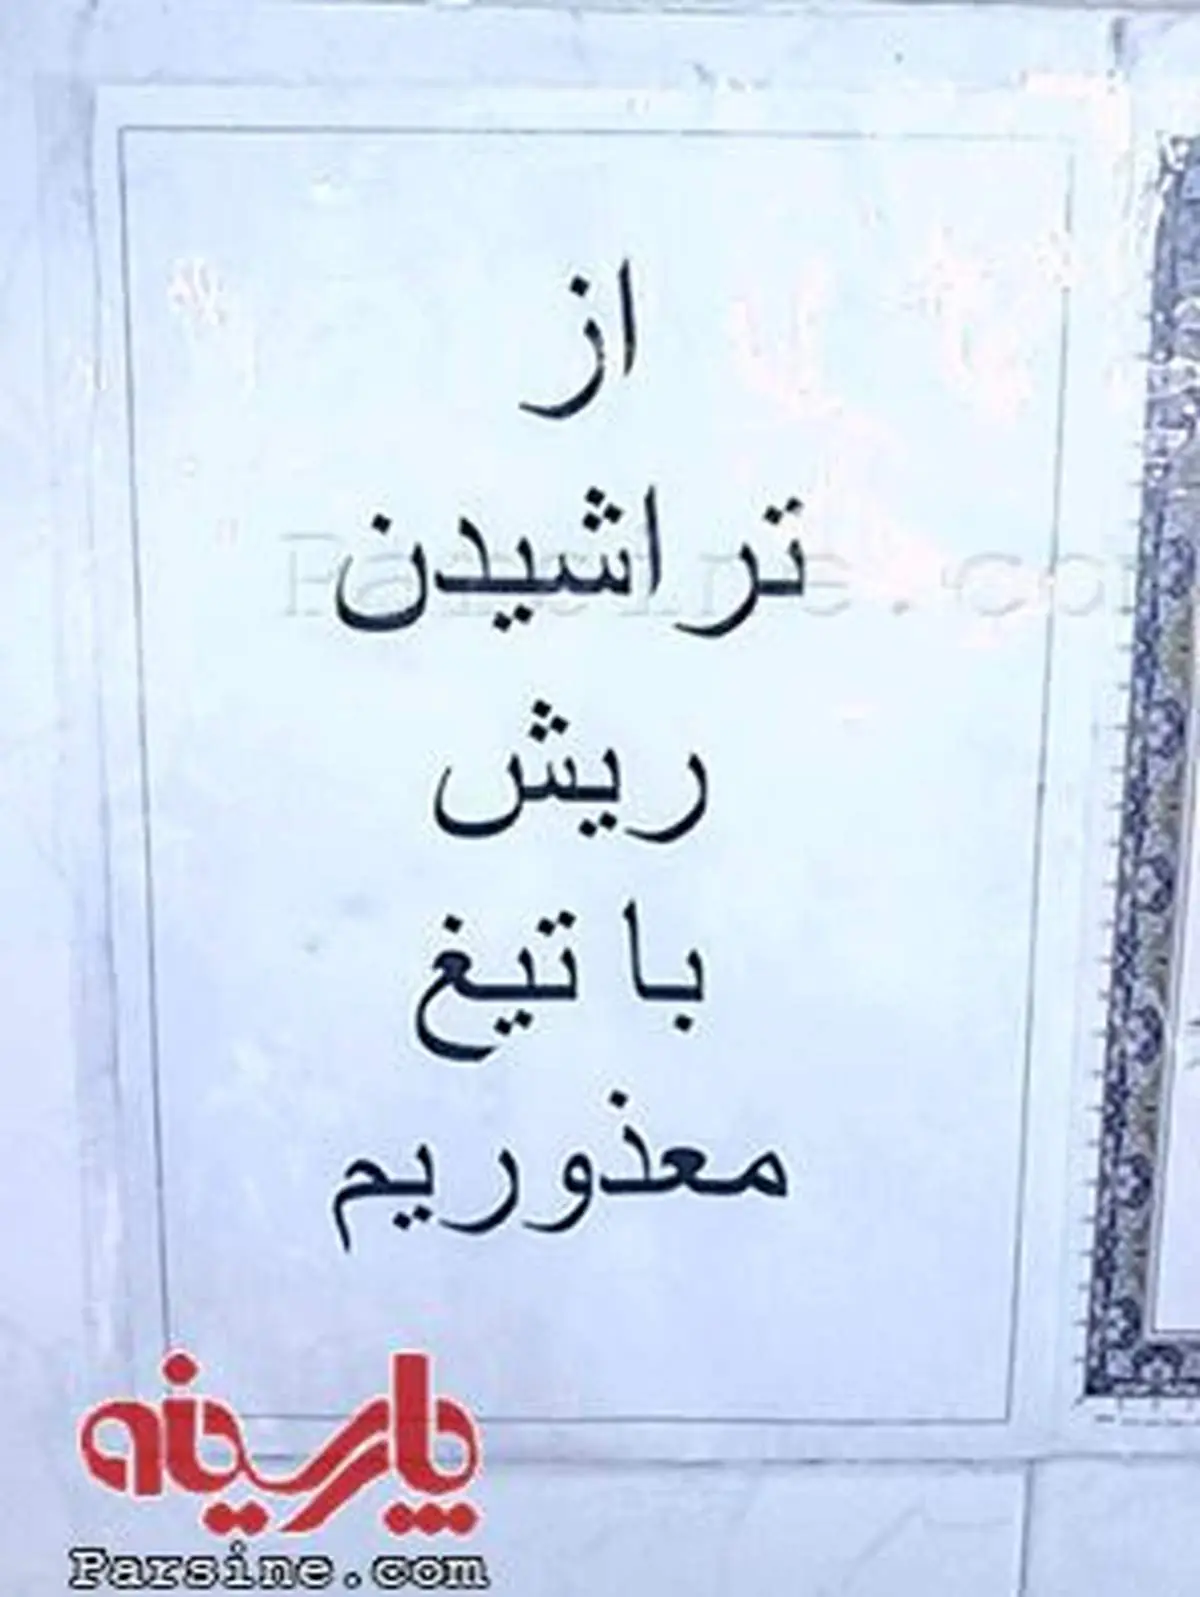 از
تراشیدن
ریش
با تیغ
معذوریم
پارسینه
Parsine.com